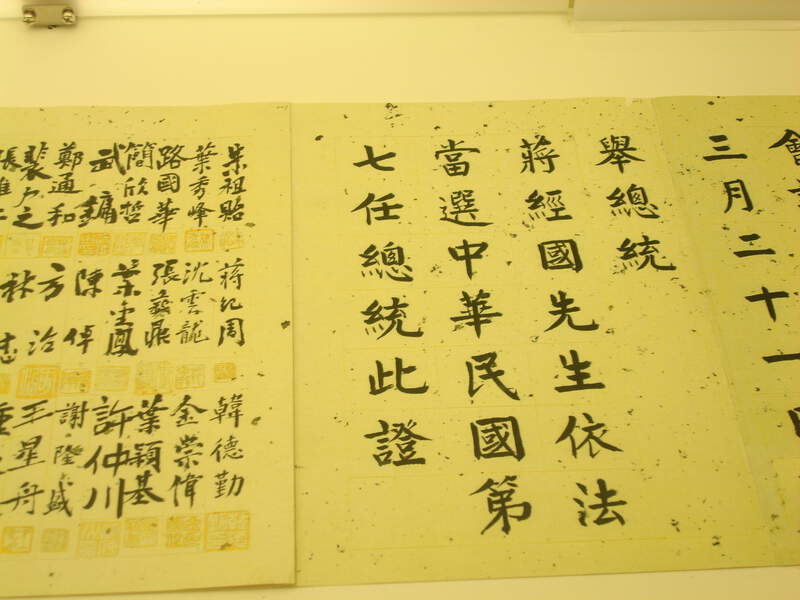 三月二十一日
舉總統
蔣經國先生依法
當選中華民國第
七任總統此證
朱祖貽
蔣紀周
韓德勤
葉秀峰
沈雲龍
金崇偉
路國華
張彝鼎
葉穎基
簡欣哲
葉金鳳
許仲川
武鏞
陳倬
謝隆盛
鄭通和
方治
王星舟
裴夕之